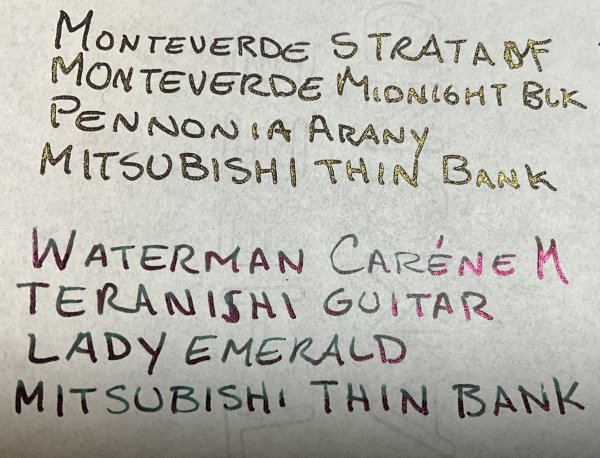 MONTEVERDE STRATA BF
MONTEVERDE MIDNIGHT BLK
PENNONIA ARANY
MITSUBISHI THIN BANK
WATERMAN CARÉNE M
TERANISHI GUITAR
LADY EMERALD
MITSUBISHI THIN BANK